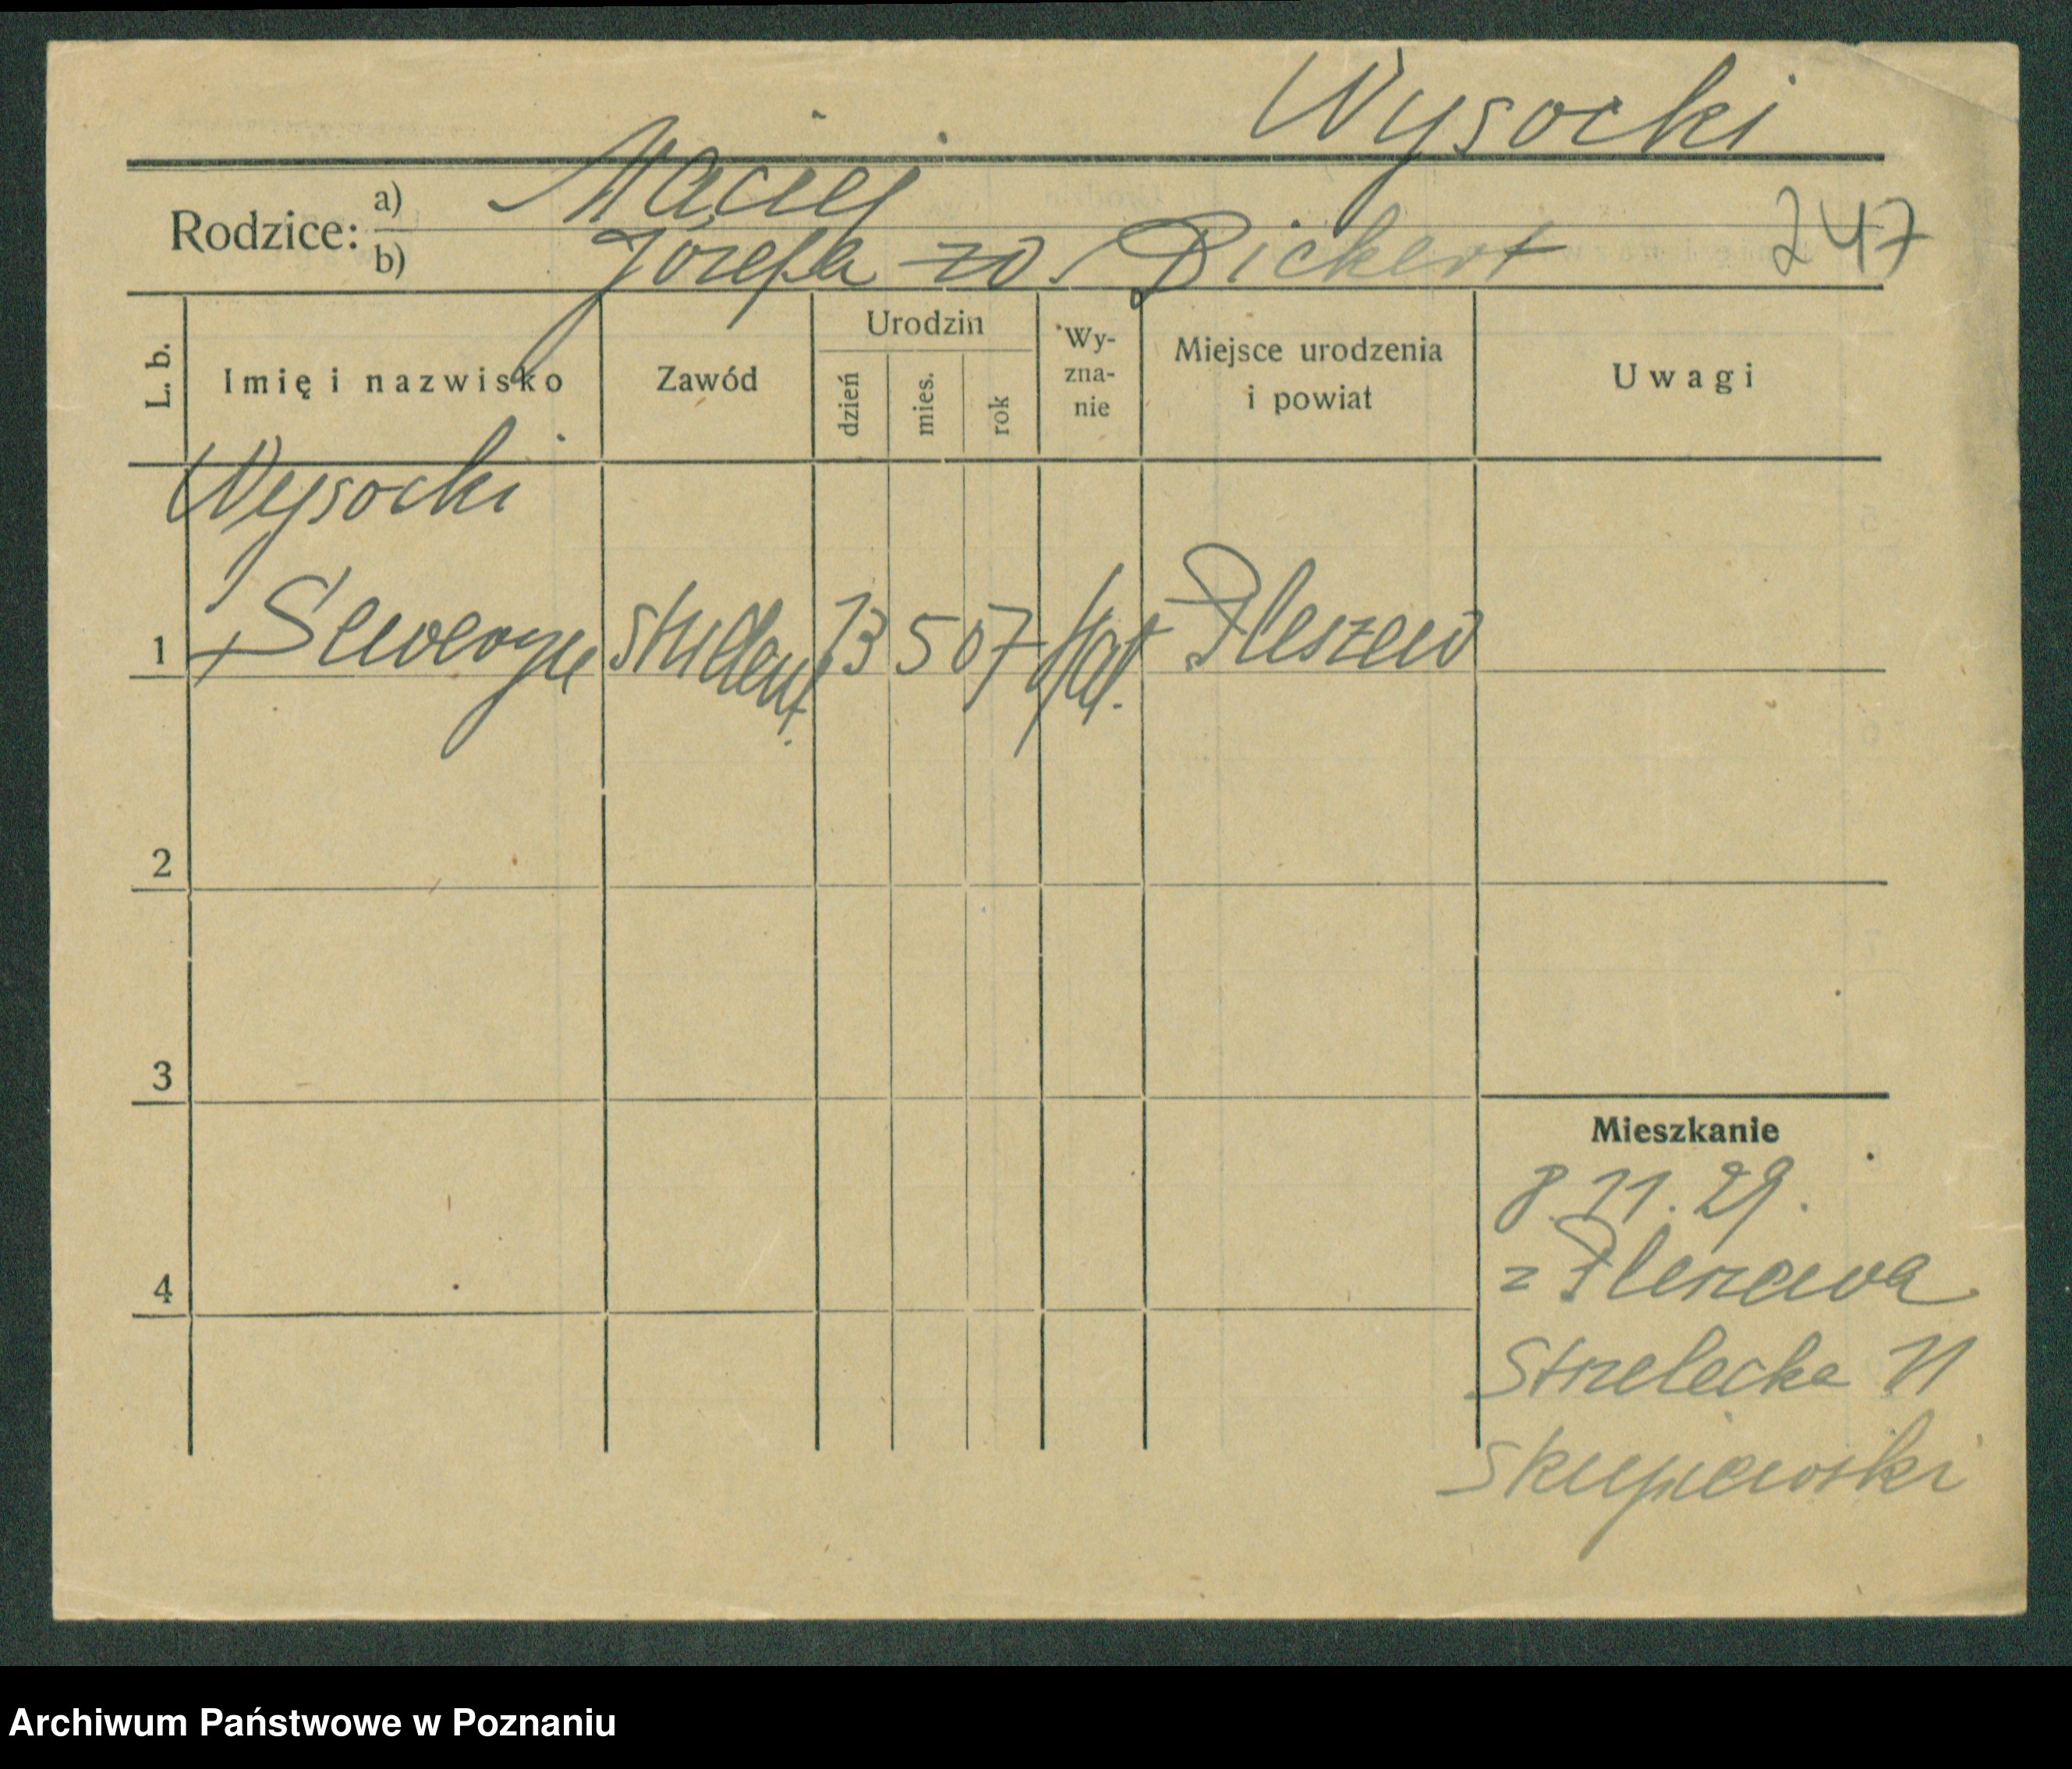 Wysocki
Rodzice: a) Maciej
b) Józefa zd. Dickert 247
L. b. Imię i nazwisko Zawód Urodzin dzień mies. rok Wy-zna-nie Miejsce urodzenia i powiat Uwagi
Wysocki
1 Seweryn student 13 5 07 kat. Pleszew
2
3
Mieszkanie
8.11.29.
z Pleszewa
4
Strzelecka 11
Skupiewski
Archiwum Państwowe w Poznaniu